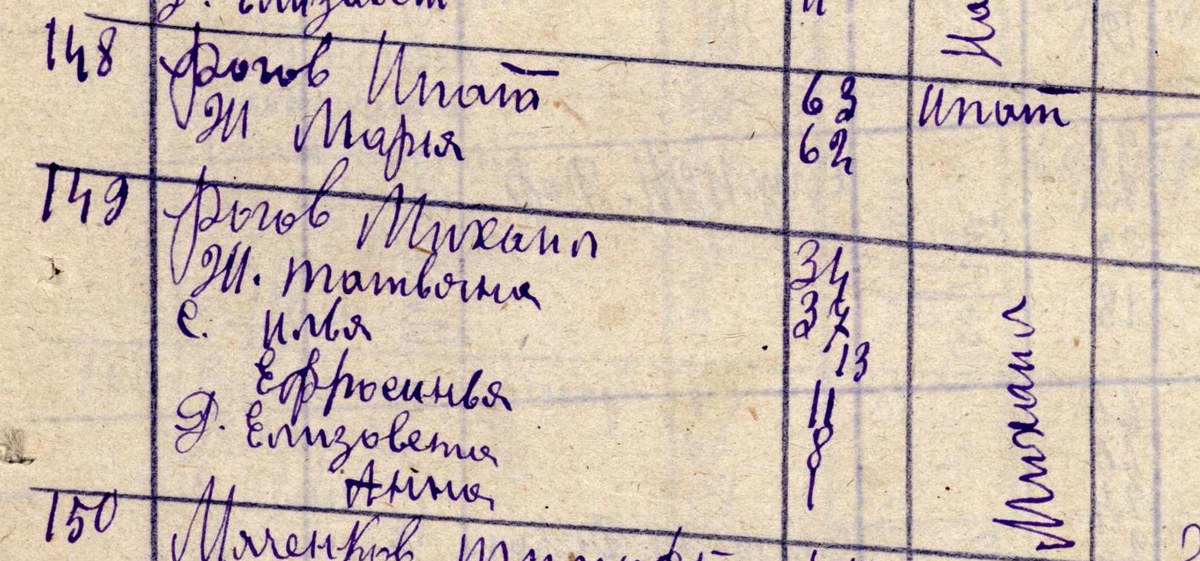 Д. Елизавет 11
148 Рогов Ипат 63 Ипат
Ж Мария 62
149 Рогов Михаил 34 Михаил
Ж. татьяна 37
С. илья 13
Ефросинья 11
Д. Елизовета 8
Анна 1
150 Мяченков